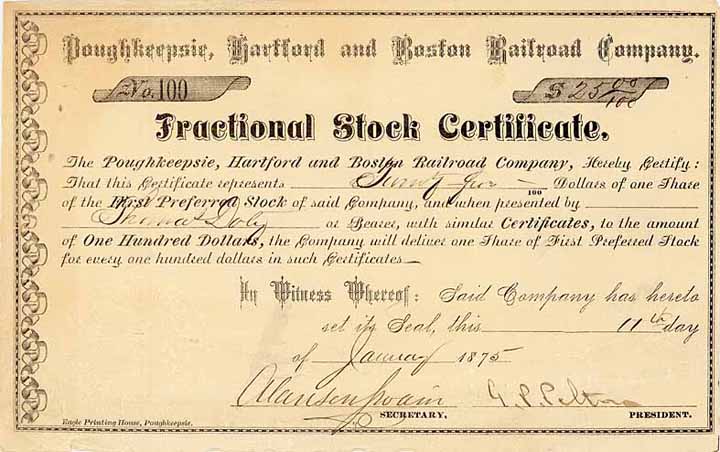 Poughkeepsie, Hartford and Boston Railroad Company.
No. 100 $ 25 00/100
Fractional Stock Certificate.
The Poughkeepsie, Hartford and Boston Railroad Company, Hereby Certify:
That this Certificate represents Twenty five — 100 Dollars of one Share
of the First Preferred Stock of said Company, and when presented by
Thomas Doty or Bearer, with similar Certificates, to the amount
of One Hundred Dollars, the Company will deliver one Share of First Preferred Stock
for every one hundred dollars in such Certificates—
In Witness Whereof: Said Company has hereto
set its Seal, this 11th day
of January 1875
Alanson Swain G. P. Pelton
SECRETARY, PRESIDENT.
Eagle Printing House, Poughkeepsie.